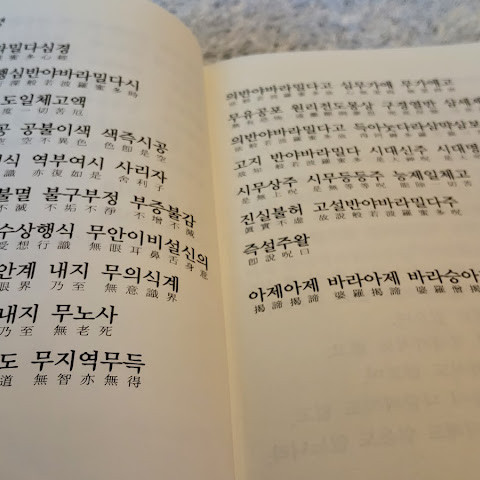 라밀다심경
羅蜜多心經
행심반야바라밀다시
行深般若波羅蜜多時
도일체고액
度一切苦厄
공 공불이색 색즉시공
空 空不異色 色卽是空
식 역부여시 사리자
識 亦復如是 舍利子
불멸 불구부정 부증불감
不滅 不垢不淨 不增不減
수상행식 무안이비설신의
受想行識 無眼耳鼻舌身意
안계 내지 무의식계
眼界 乃至 無意識界
내지 무노사
乃至 無老死
도 무지역무득
道 無智亦無得
의반야바라밀다고 심무가애 무가애고
무유공포 원리전도몽상 구경열반 삼세제
의반야바라밀다고 득아뇩다라삼먁삼보
고지 반야바라밀다 시대신주 시대명
시무상주 시무등등주 능제일체고
是無上呪 是無等等呪 能除一切苦
진실불허 고설반야바라밀다주
眞實不虛 故說般若波羅蜜多呪
즉설주왈
卽說呪曰
아제아제 바라아제 바라승아
揭諦揭諦 婆羅揭諦 婆羅僧揭